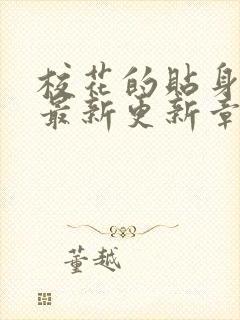 校花的贴身
最新更新章
董越